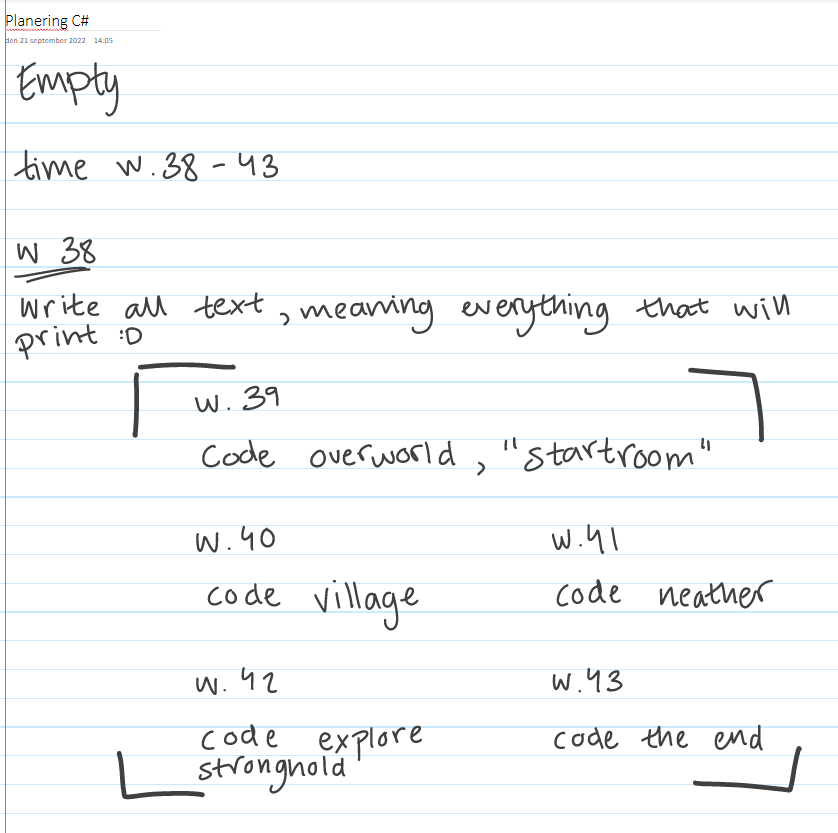 Planering C#
den 21 september 2022 14:05
Empty
time w.38 - 43
W 38
Write all text, meaning everything that will
print :D
w. 39
Code overworld, "startroom"
w.40
code village
w.41
code neather
w. 42
code explore
stronghold
w.43
code the end